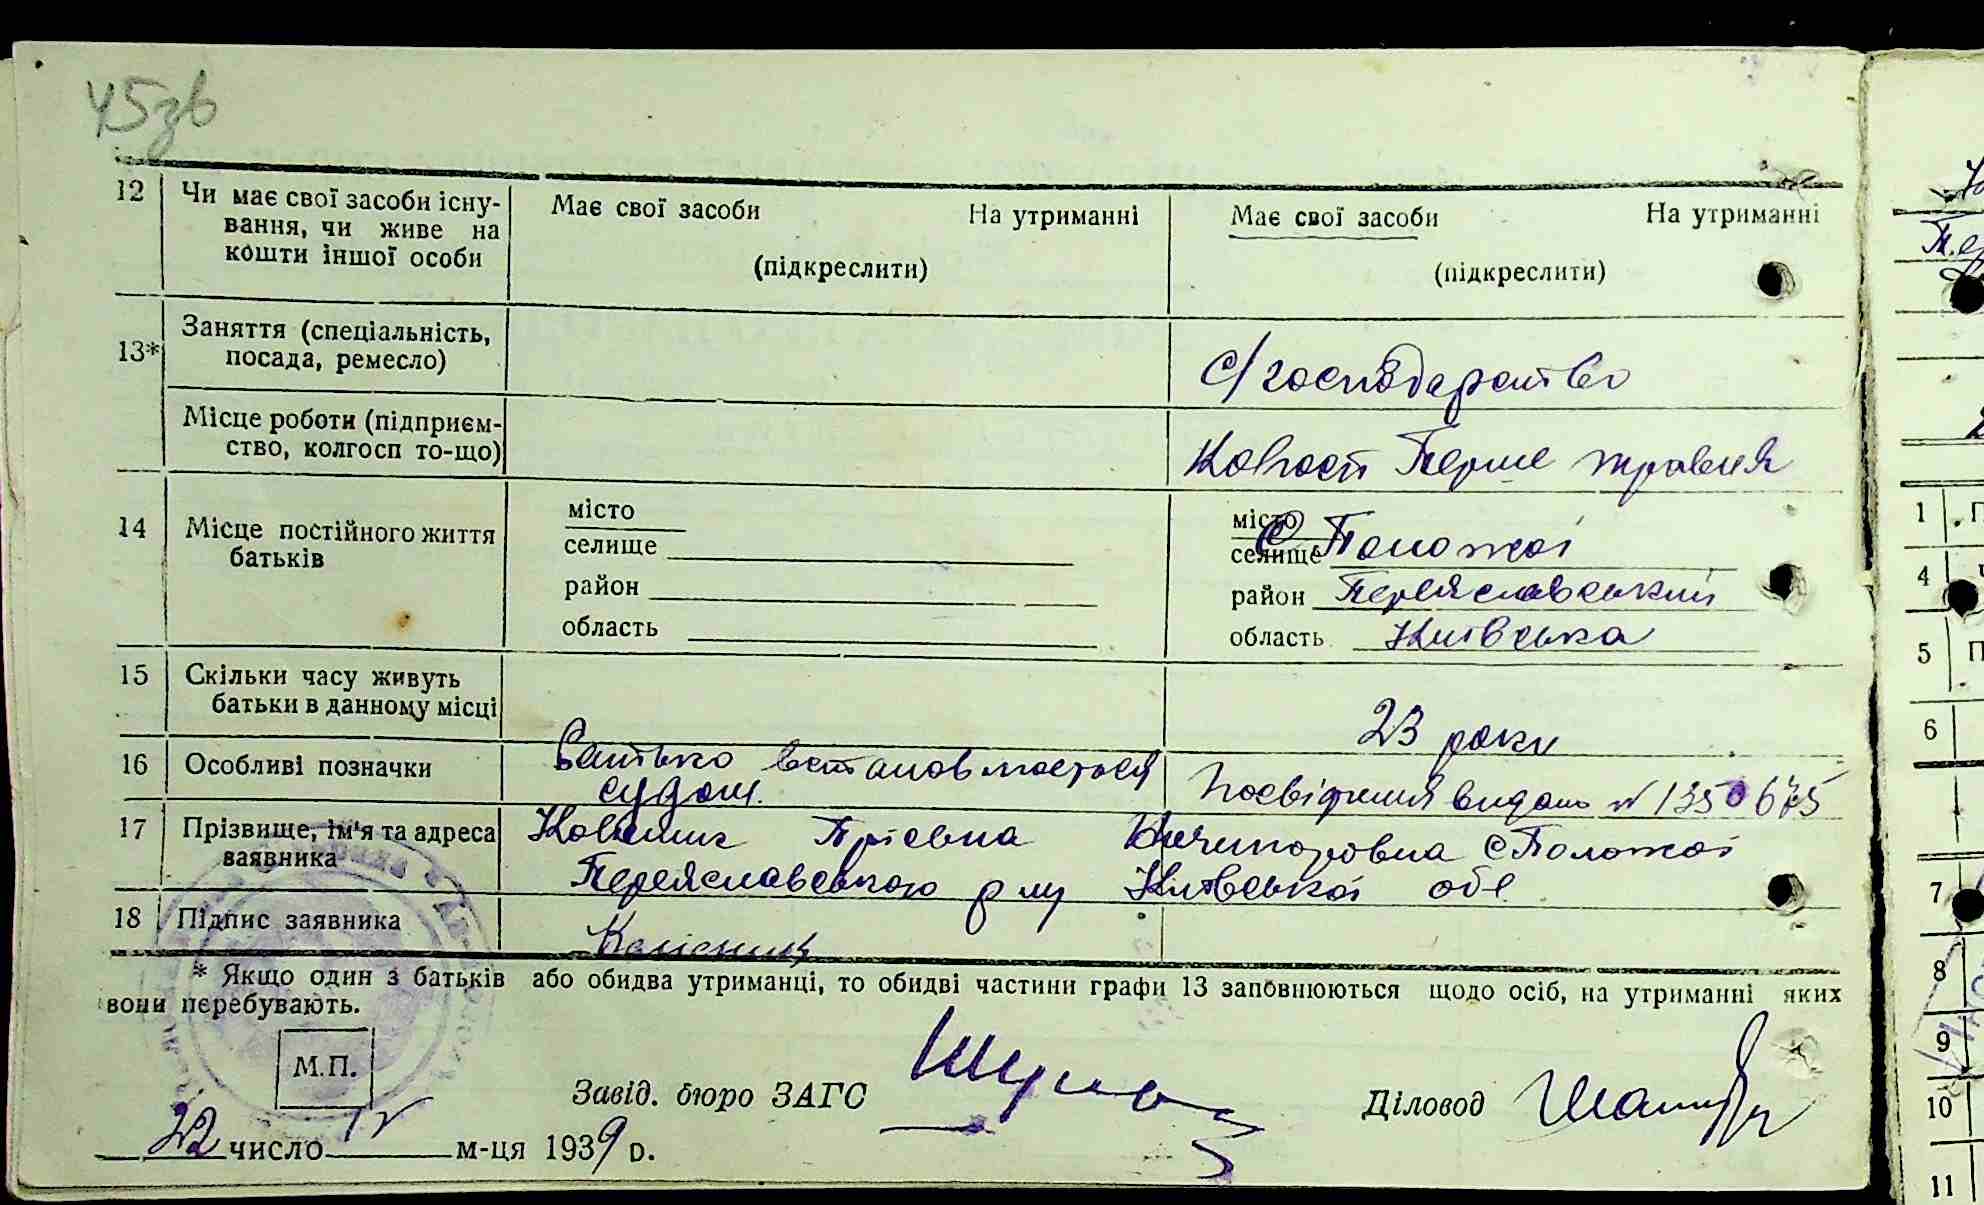 45зв
12 Чи має свої засоби існу-
вання, чи живе на
кошти іншої особи
Має свої засоби На утриманні
(підкреслити)
Має свої засоби На утриманні
(підкреслити)
13* Заняття (спеціальність,
посада, ремесло)
с/господарство
Місце роботи (підприєм-
ство, колгосп то-що)
Колгосп Перше травня
14 Місце постійного життя
батьків
місто
селище
район
область
місто
селище с Положаї
район Переяславський
область Київська
15 Скільки часу живуть
батьки в данному місці
23 роки
16 Особливі позначки
Батько встановлюється
судом.
Посвідчення видано № 1350675
17 Прізвище, ім'я та адреса
заявника
Нечипоровна с Положаї
Переяславського р ну Київської обл
18 Підпис заявника
* Якщо один з батьків або обидва утриманці, то обидві частини графи 13 заповнюються щодо осіб, на утриманні яких
вони перебувають.
М.П.
Завід. бюро ЗАГС
Діловод
22 число IV м-ця 1939 р.
1 П
4
5 П
6
7
8
9
10
11